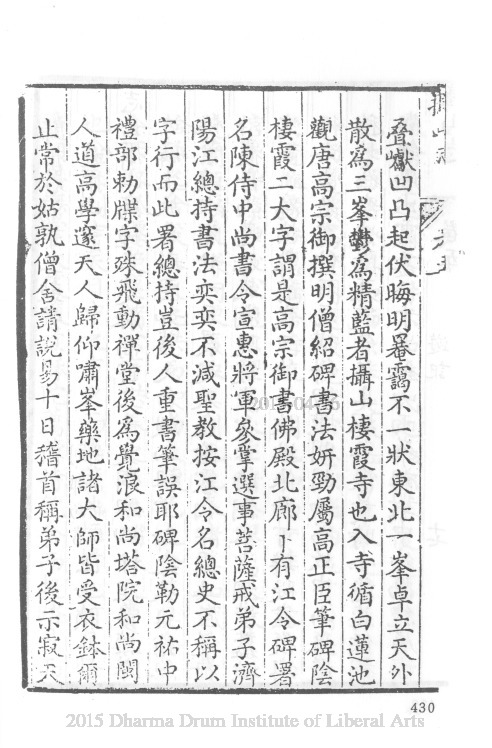 疊巘凹凸起伏晦明暑靄不一狀東北一峯卓立天外
散爲三峯鬱爲精藍者攝山棲霞寺也入寺循白蓮池
觀唐高宗御撰明僧紹碑書法妍勁屬高正臣筆碑陰
棲霞二大字謂是高宗御書佛殿北廊下有江令碑署
名陳侍中尚書令宣惠將軍參掌選事菩薩戒弟子濟
陽江總持書法奕奕不減聖教按江令名總史不稱以
字行而此署總持豈後人重書筆誤耶碑陰勒元祐中
禮部勅牒字殊飛動禪堂後爲覺浪和尚塔院和尚閩
人道高學邃天人歸仰嘯峯藥地諸大師皆受衣鉢爾
止常於姑孰僧舍請說易十日稽首稱弟子後示寂天
430
2015 Dharma Drum Institute of Liberal Arts